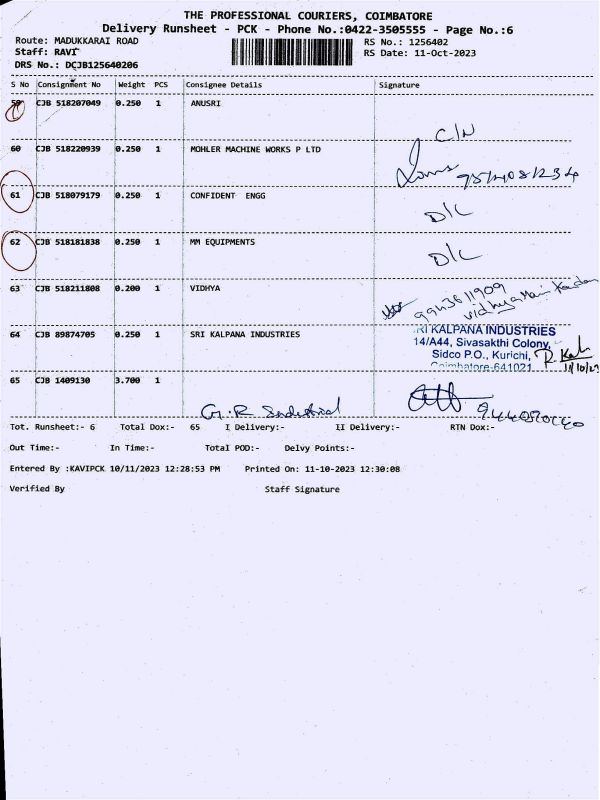 THE PROFESSIONAL COURIERS, COIMBATORE
Delivery Runsheet - PCK - Phone No.:0422-3505555 - Page No.:6
Route: MADUKKARAI ROAD RS No.: 1256402
Staff: RAVI RS Date: 11-Oct-2023
DRS No.: DCJB125640206
S No Consignment No Weight PCS Consignee Details Signature
59 CJB 518207049 0.250 1 ANUSRI
C/N
60 CJB 518220939 0.250 1 MOHLER MACHINE WORKS P LTD
61 CJB 518079179 0.250 1 CONFIDENT ENGG
D/L
62 CJB 518181838 0.250 1 MM EQUIPMENTS
D/L
63 CJB 518211808 0.200 1 VIDHYA
9943611909
64 CJB 89874705 0.250 1 SRI KALPANA INDUSTRIES
RI KALPANA INDUSTRIES
14/A44, Sivasakthi Colony,
Sidco P.O., Kurichi,
Coimbatore-641021
11/10/23
65 CJB 1409130 3.700 1
G.R Industrial
Tot. Runsheet:- 6 Total Dox:- 65 I Delivery:- II Delivery:- RTN Dox:-
Out Time:- In Time:- Total POD:- Delvy Points:-
Entered By :KAVIPCK 10/11/2023 12:28:53 PM Printed On: 11-10-2023 12:30:08
Verified By Staff Signature